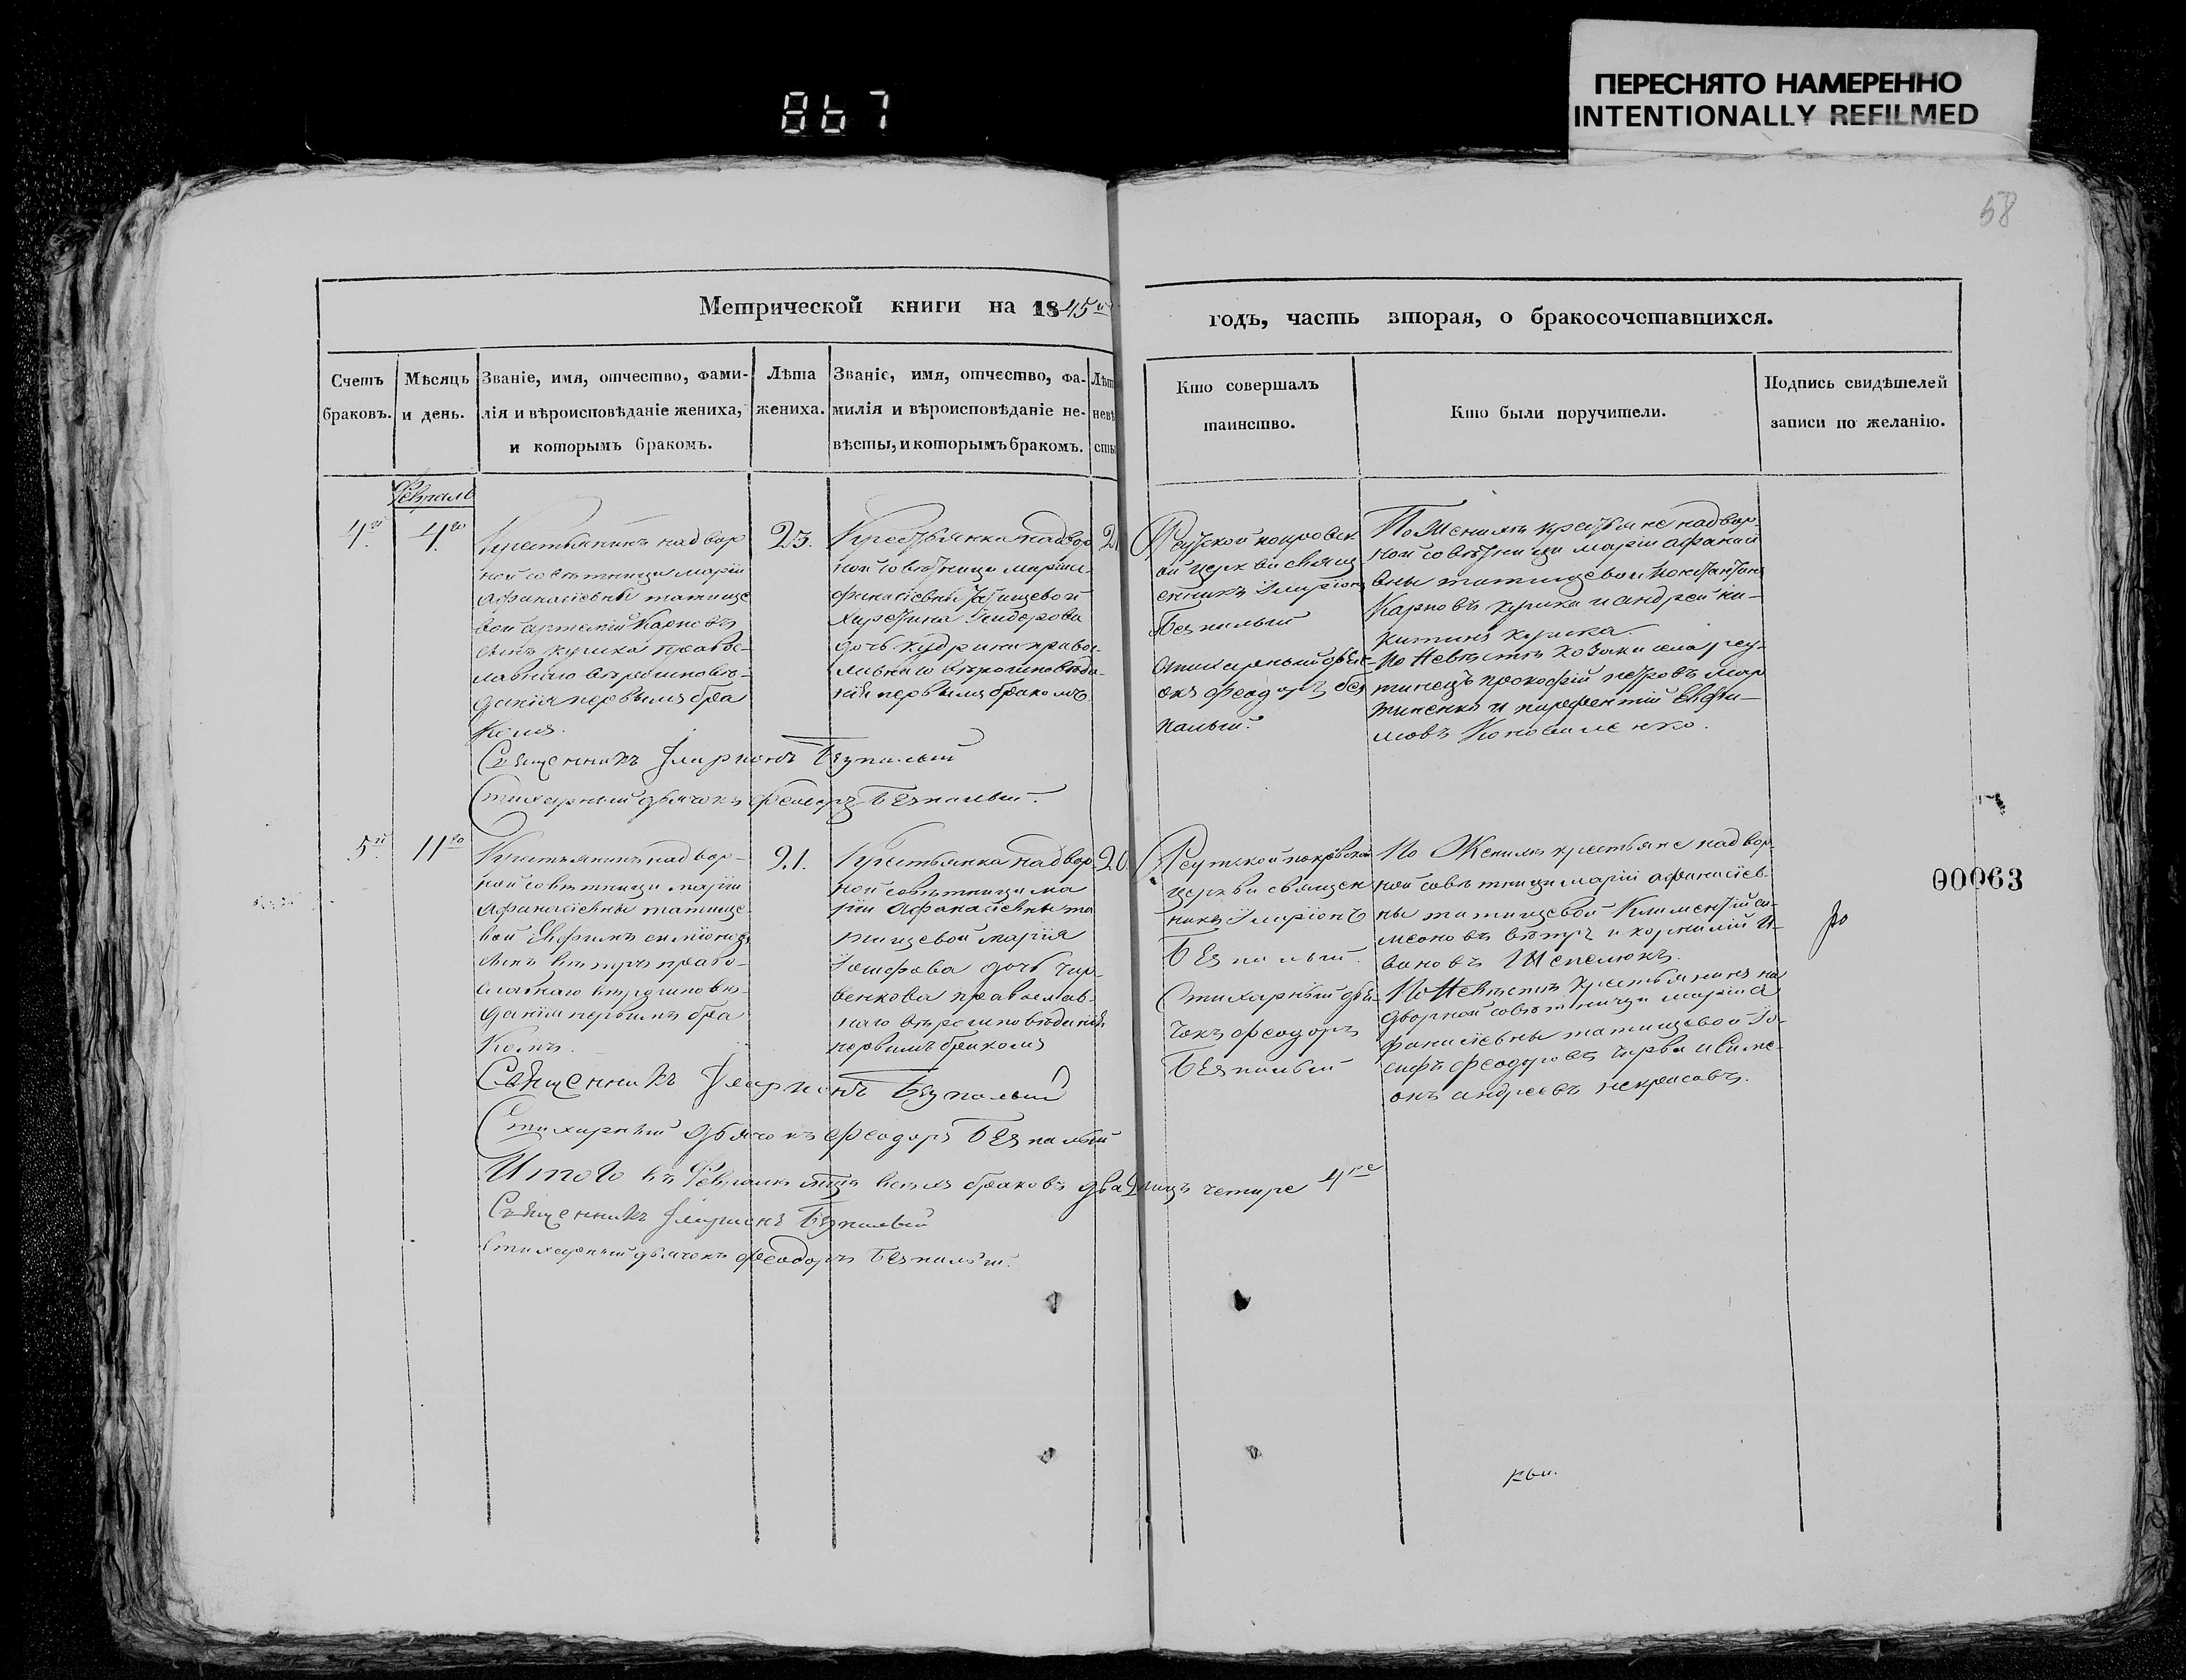 867
ПЕРЕСНЯТО НАМЕРЕННО
INTENTIONALLY REFILMED
58
Метрической книги на 1845й
годъ, часть вторая, о бракосочетавшихся.
Счетъ
браковъ.
Мѣсяцъ
и день.
Званіе, имя, отчество, фами-
лія и вѣроисповѣданіе жениха,
и которымъ бракомъ.
Лѣта
жениха.
Званіе, имя, отчество, фа-
милія и вѣроисповѣданіе не-
вѣсты, и которымъ бракомъ.
Лѣт
невѣ
сты
Кто совершалъ
таинство.
Кто были поручители.
Подпись свидѣтелей
записи по желанію.
Февраль
4й
4го
Крестьянинъ надвор
ной совѣтници маріи
Афанасіевны татище
вой Карповъ
сынъ кулика право-
лавнаго вѣроисповѣ-
данія первымъ бра
комъ.
25.
Крестьянка надвор
ной совѣтници маріи а
фанасіевны татищевой
дочь право
лавнаго вѣроисповѣда-
нія первымъ бракомъ
2
Реутской покровск
ой церкви священ
енникъ Іларіонъ
Безпалый
стихарный дьяч-
окъ Феодоръ без
палый.
По Женихѣ крестьяне надвор-
ной совѣтници маріи афанасі
евны татищевой Константинъ
Карповъ кулика и андрей ни-
китинъ кулика.
По Невѣстѣ козаки села реу-
тинецъ прокофій петровъ мар
тиненко и парфентій Евфи-
мовъ Коноваленко.
Священникъ Іларіонъ Безпалый
Стихарный дьячокъ Феодоръ Безпалый.
5й
11го
Крестьянинъ надвор-
ной совѣтници маріи
Афанасіевны татище-
вой Евфимъ симіоновъ
сынъ вѣтръ право-
славнаго вѣроисповѣ-
данія первымъ бра
комъ.
21.
Крестьянка надвор
ной совѣтници ма
ріи Афанасіевны та
тищевой марія
Іосифова дочь чир-
венкова православ-
наго вѣроисповѣданія
первымъ бракомъ
20.
Реутской покровской
церкви священ
никъ Іларіонъ
Безпалый.
Стихарный дья-
чокъ Феодоръ
Безпалый
По Женихѣ крестьяне надвор-
ной совѣтници маріи афанасіев-
ны татищевой Климентій си-
меоновъ вѣтръ и корнилій И-
вановъ Шепелюкъ.
По Невѣстѣ крестьянинъ на
дворной совѣтници маріи а
фанасіевны татищевой Іо-
сифъ Феодоровъ чирва и Симе-
онъ андреевъ некрасовъ.
00063
Священникъ Іларіонъ Безпалый
Стихарный дьячокъ Феодоръ Безпалый
Итого въ Февралѣ мцѣ всѣхъ браковъ два лицъ четыре 4ре
Священникъ Іларіонъ Безпалый
Стихарный дьячокъ Феодоръ Безпалый.